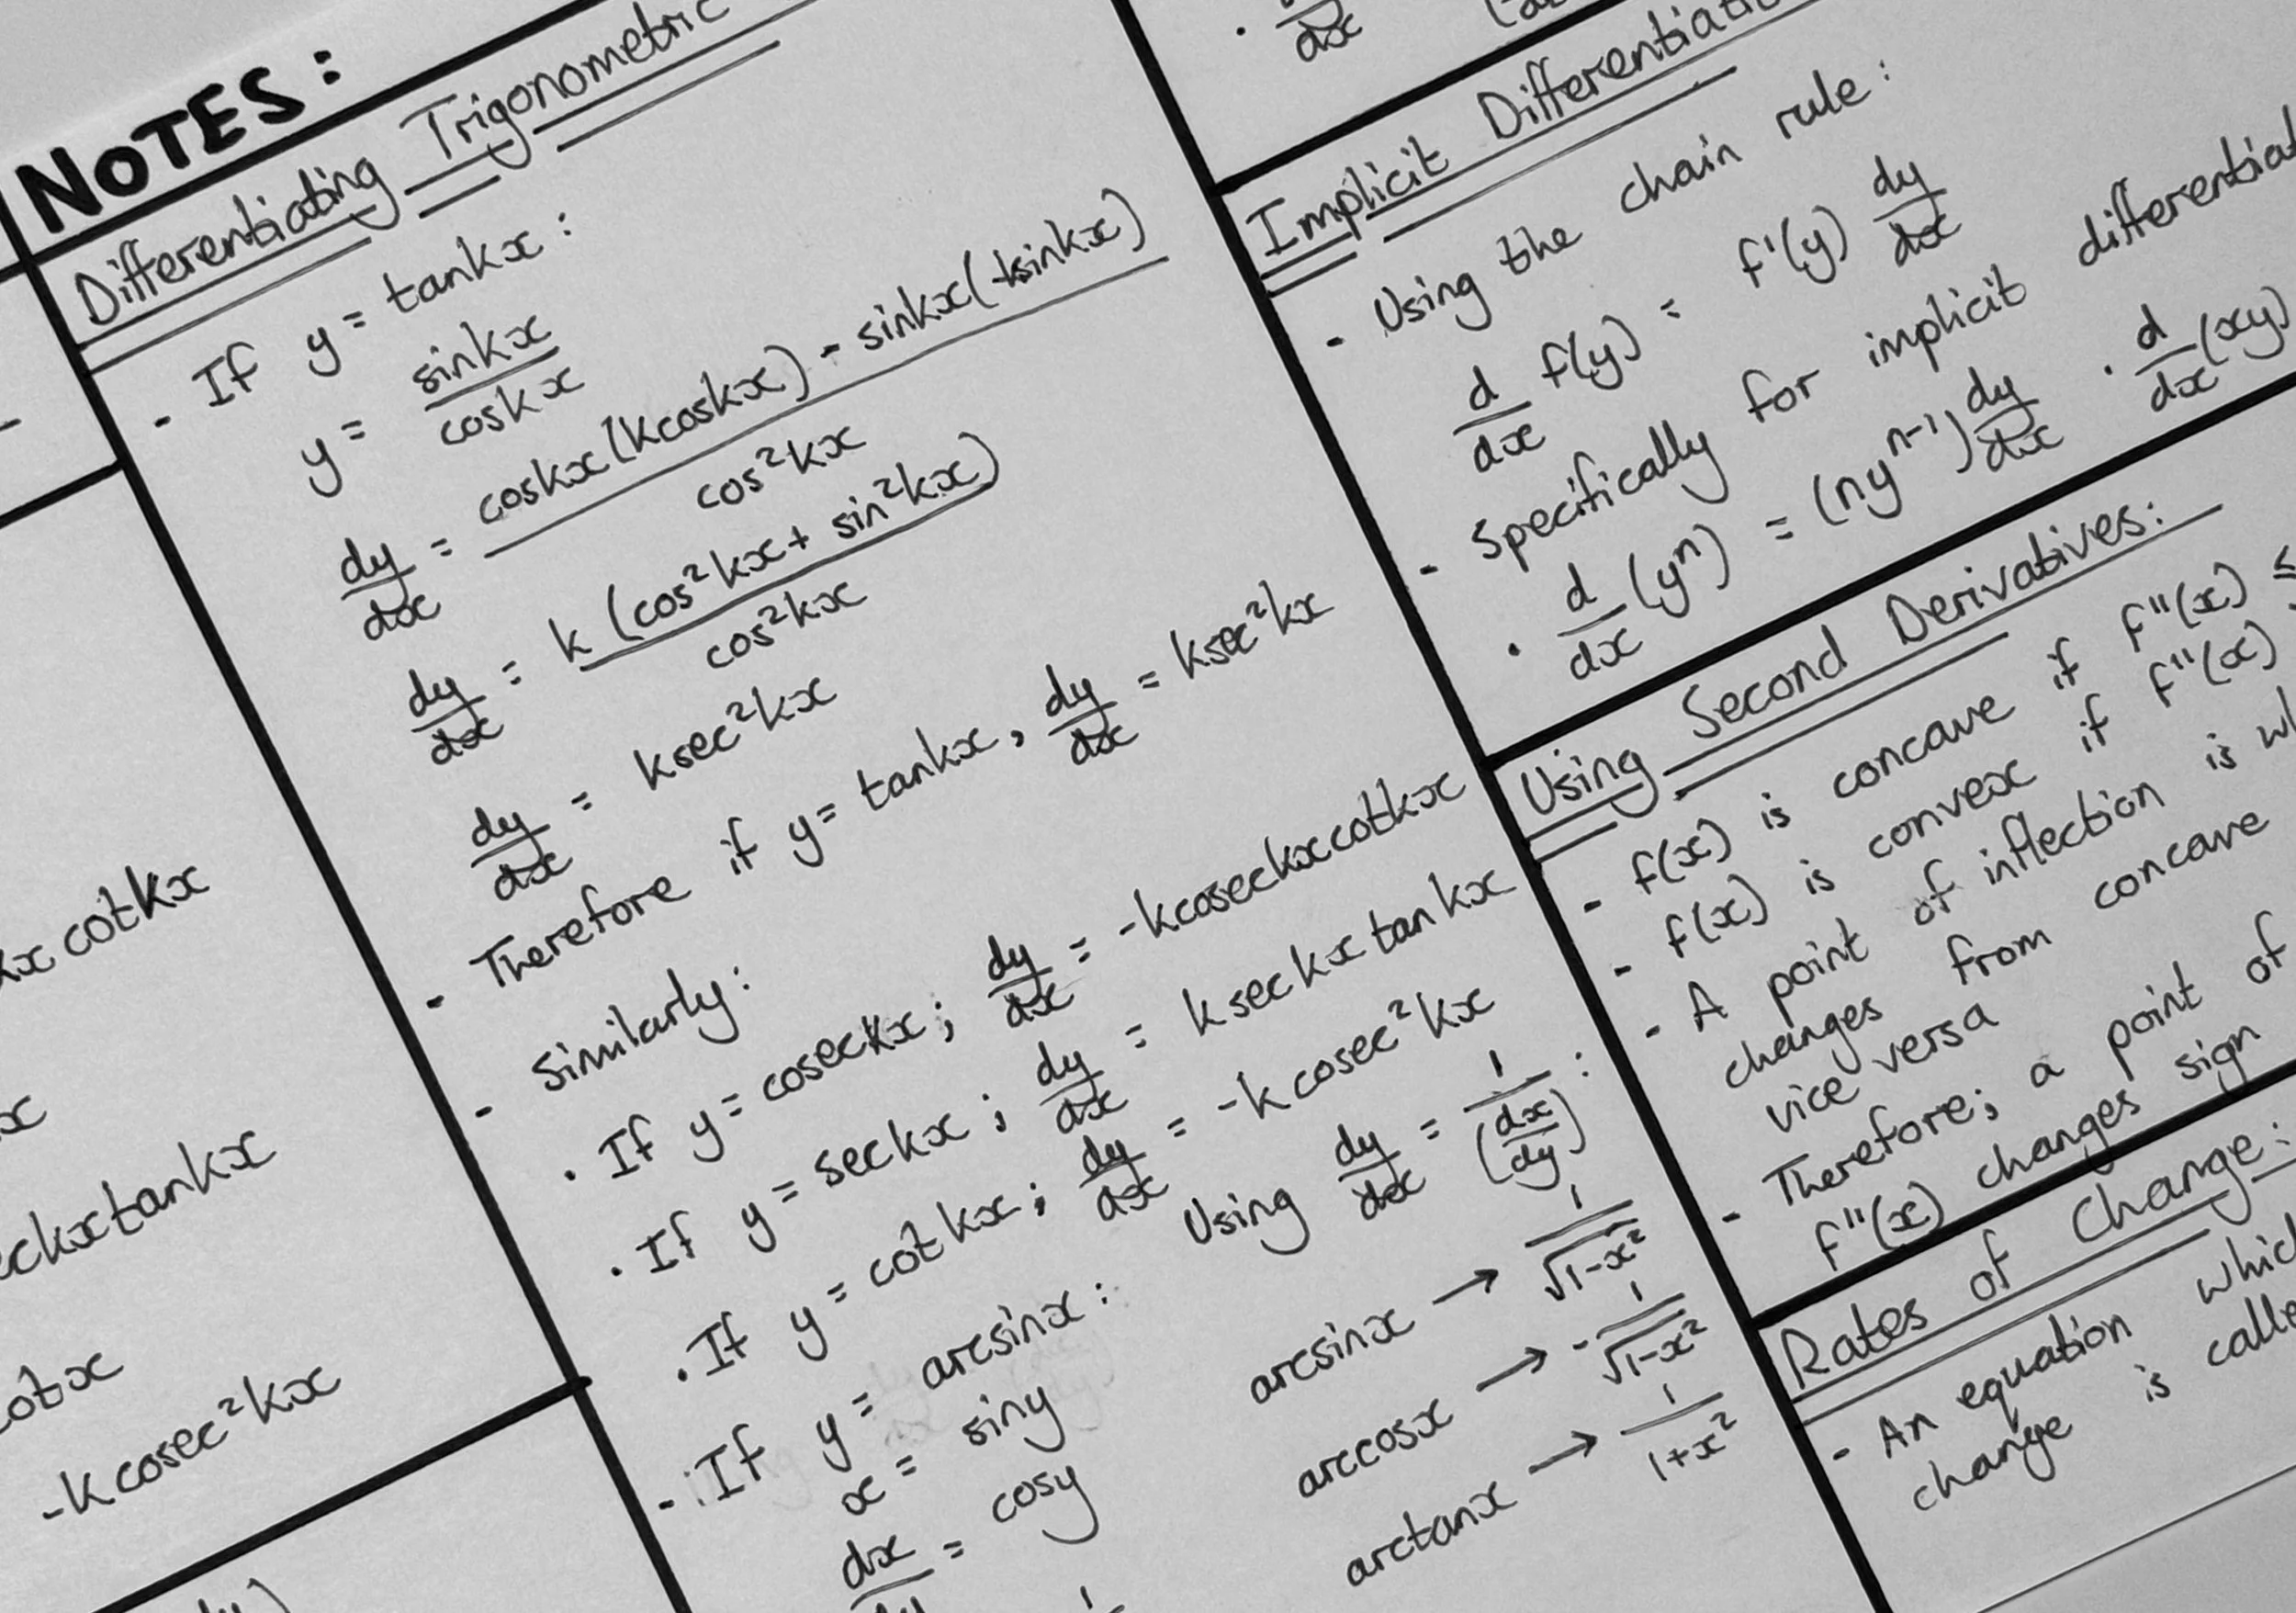 NOTES:
Differentiating Trigonometric
- If y = tankx:
y = sinkx/coskx
dy/dx = coskx(kcoskx) - sinkx(-ksinkx)/cos²kx
dy/dx = k(cos²kx + sin²kx)/cos²kx
dy/dx = ksec²kx
- Therefore if y = tankx, dy/dx = ksec²kx
- Similarly:
· If y = coseckx; dy/dx = -kcoseckxcotkx
· If y = seckx; dy/dx = kseckxtankx
· If y = cotkx; dy/dx = -kcosec²kx
- If y = arcsinx: Using dy/dx = 1/(dx/dy):
x = siny
dx/dy = cosy
1
arcsinx → 1/√1-x²
arccosx → -1/√1-x²
arctanx → 1/1+x²
cotkx
tankx
-kcosec²kx
· dx
Implicit Differentiation
- Using the chain rule:
d/dx f(y) = f'(y) dy/dx
- Specifically for implicit
· d/dx (yⁿ) = (nyⁿ⁻¹) dy/dx · d/dx (xy)
Using Second Derivatives:
- f(x) is concave if f''(x) ≤
- f(x) is convex if f''(x)
- A point of inflection is
changes from concave
vice versa
- Therefore; a point of
f''(x) changes sign
Rates of Change:
- An equation
change is